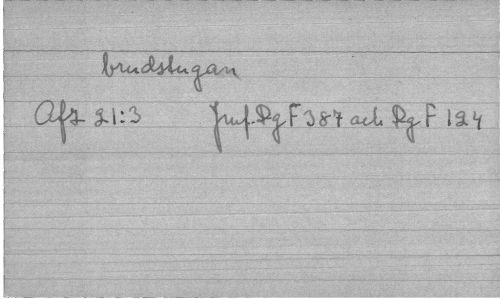 brudstugan
Afz 21:3 Jmf. Rg F 387 och Rg F 124